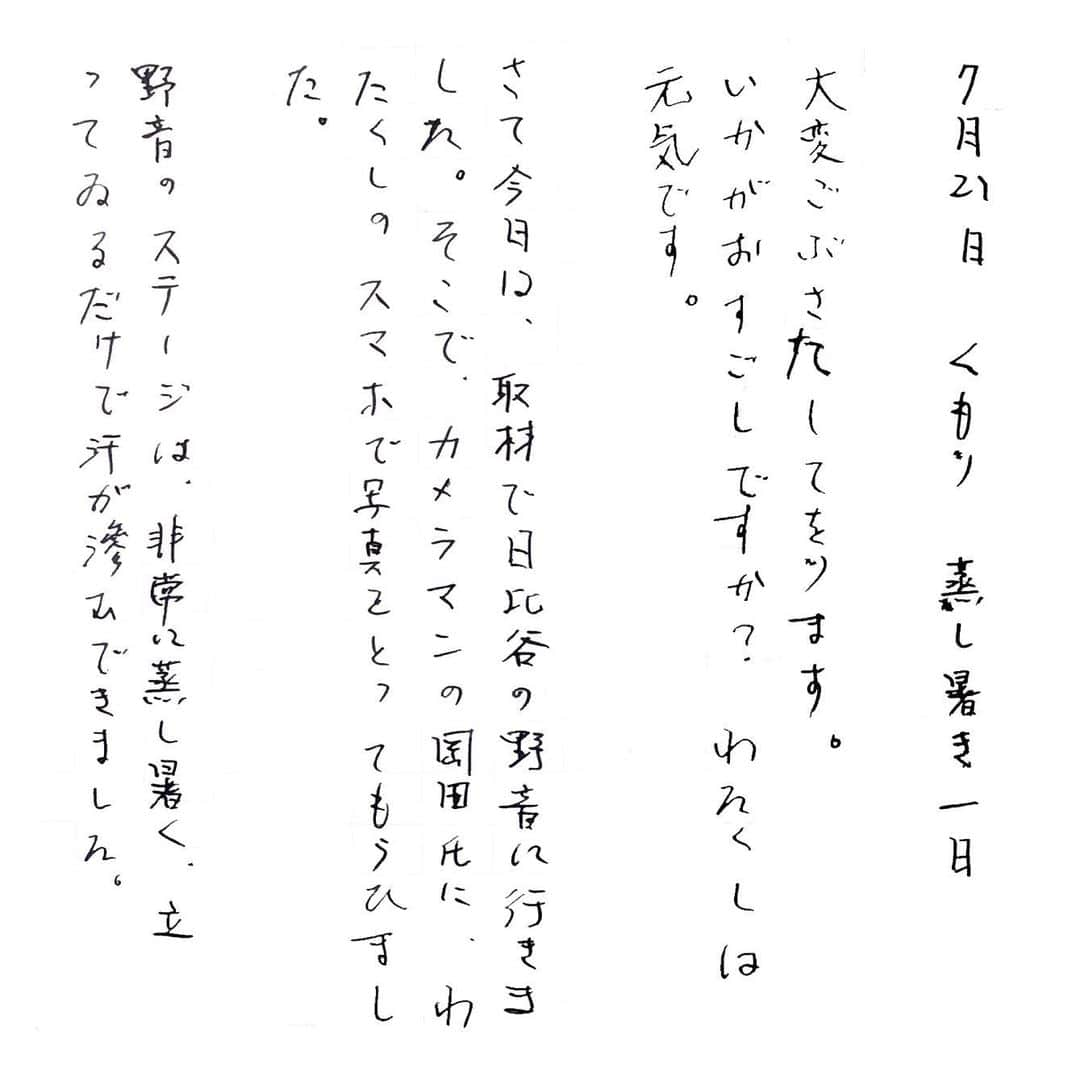 7月21日　くもり　蒸し暑き一日
大変ごぶさたしてをります。
いかがおすごしですか？わたくしは
元気です。
さて今日は、取材で日比谷の野音に行きま
した。そこで、カメラマンの岡田氏に、わ
たくしのスマホで写真をとってもらひまし
た。
野音のステージは、非常に蒸し暑く、立
ってゐるだけで汗が滲むできました。